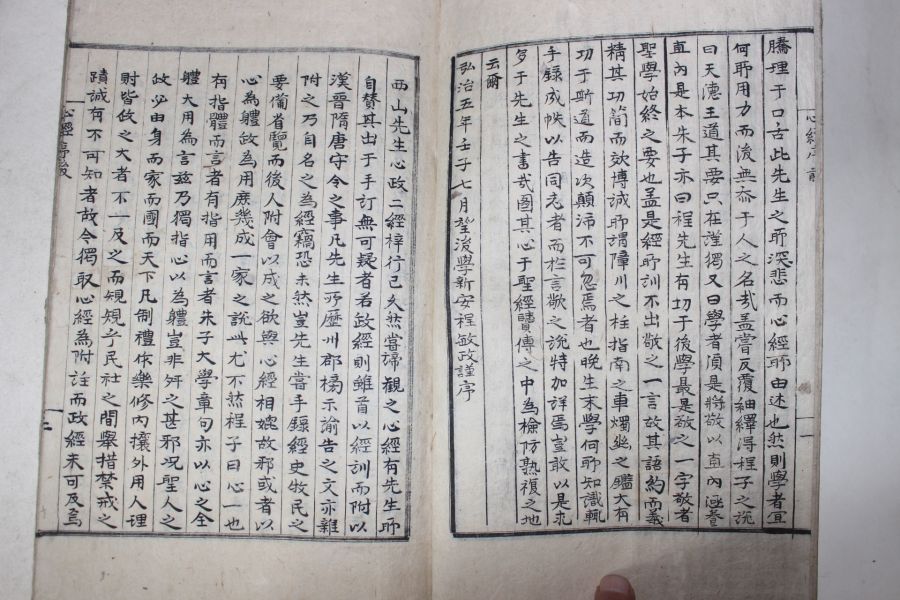 騰理于口舌此先生之所深悲而心經所由述也然則學者宜
何所用力而後無忝于人之名哉盖嘗反覆紬繹得程子之說
曰天德王道其要只在謹獨又曰學者湏是將敬以直內涵養
直內是本朱子亦曰程先生有功于後學最是敬之一字敬者
聖學始終之要也盖是經所訓不出敬之一言故其語約而義
精其功簡而效博誠所謂障川之柱指南之車燭幽之鑑大有
功于斯道而造次顛沛不可忽焉者也晚生末學何所知識輒
手錄成帙以告同志者而於言敬之說特加詳焉豈敢以是求
多于先生之書哉圖其心于聖經賢傳之中為檢防熟復之地
云爾
弘治五年壬子七月望後學新安程敏政謹序
心經序
西山先生心政二經梓行已久然嘗歸觀之心經有先生所
自賛其出于手訂無可疑者若政經則雖首以經訓而附以
漢晉隋唐守令之事凡先生所歷州郡榜示諭告之文亦雜
附之乃自名之為經竊恐未然豈先生嘗手錄經史牧民之
要備省覽而後人附會以成之欲與心經相媲故邪或者以
心為軆政為用庶幾成一家之說此尤不然程子曰心一也
有指體而言者有指用而言者朱子大學章句亦以心之全
軆大用為言玆乃獨指心以為軆豈非舛之甚邪况聖人之
政必由身而家而國而天下凡制禮作樂修內攘外用人理
財皆政之大者不一及之而規規乎民社之間舉措禁戒之
蹟誠有不可知者故令獨取心經為附註而政經未可及焉
心經序
二